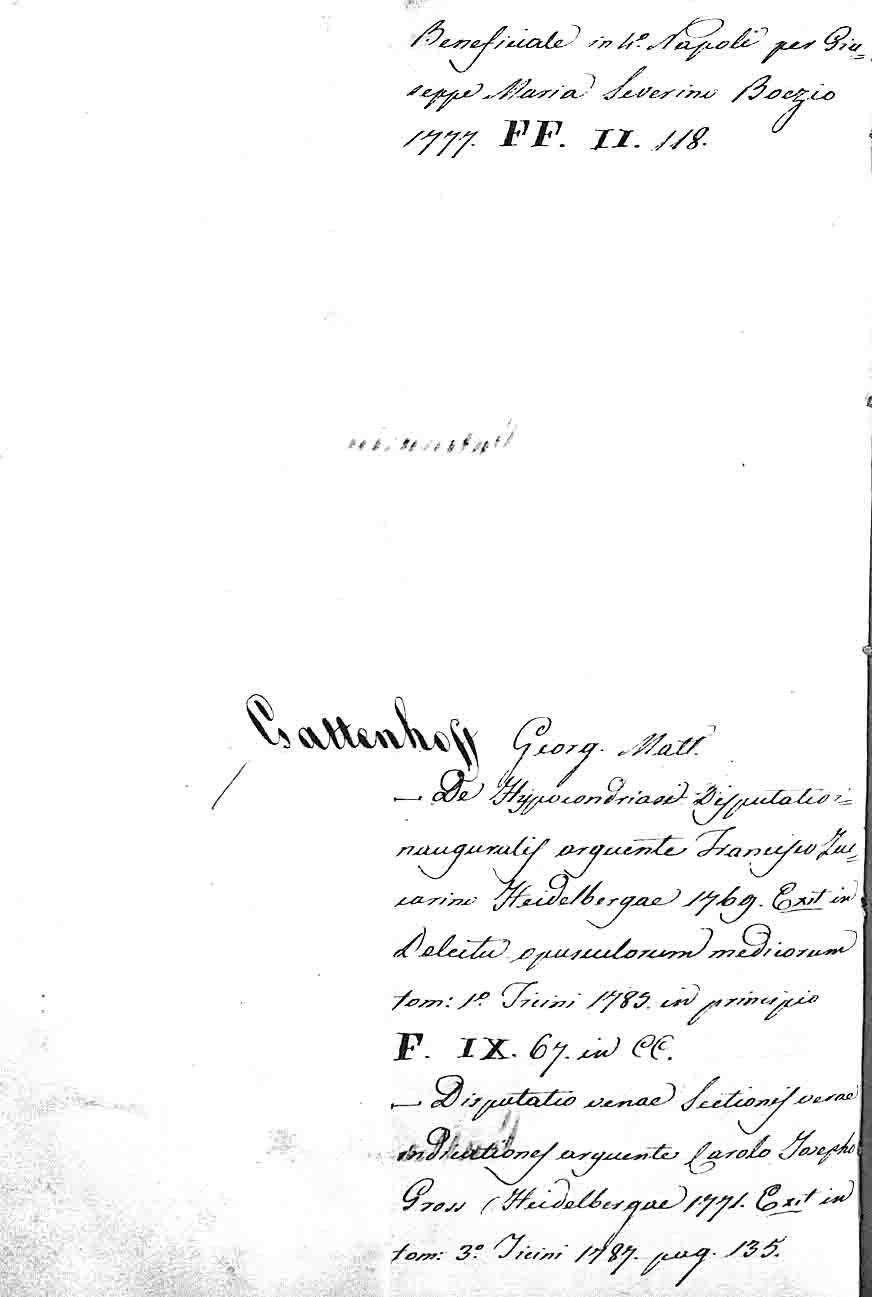 Beneficiale in 4º Napoli per Giu=
seppe Maria Severino Boezio
1777. FF. II. 118.
Gattenhoff Georg. Matt.
— De Hypocondriasi Disputatio i=
nauguralis arguente Francisco Zuc=
carino Heidelbergae 1769. Exit in
Delectu opusculorum medicorum
tom: 1º Ticini 1785. in principio
F. IX. 67. in CC.
— Disputatio venae Sectionis verae
indicationes arguente Carolo Josepho
Gross (Heidelbergae 1771. Exit in
tom: 3º Ticini 1787. pag. 135.